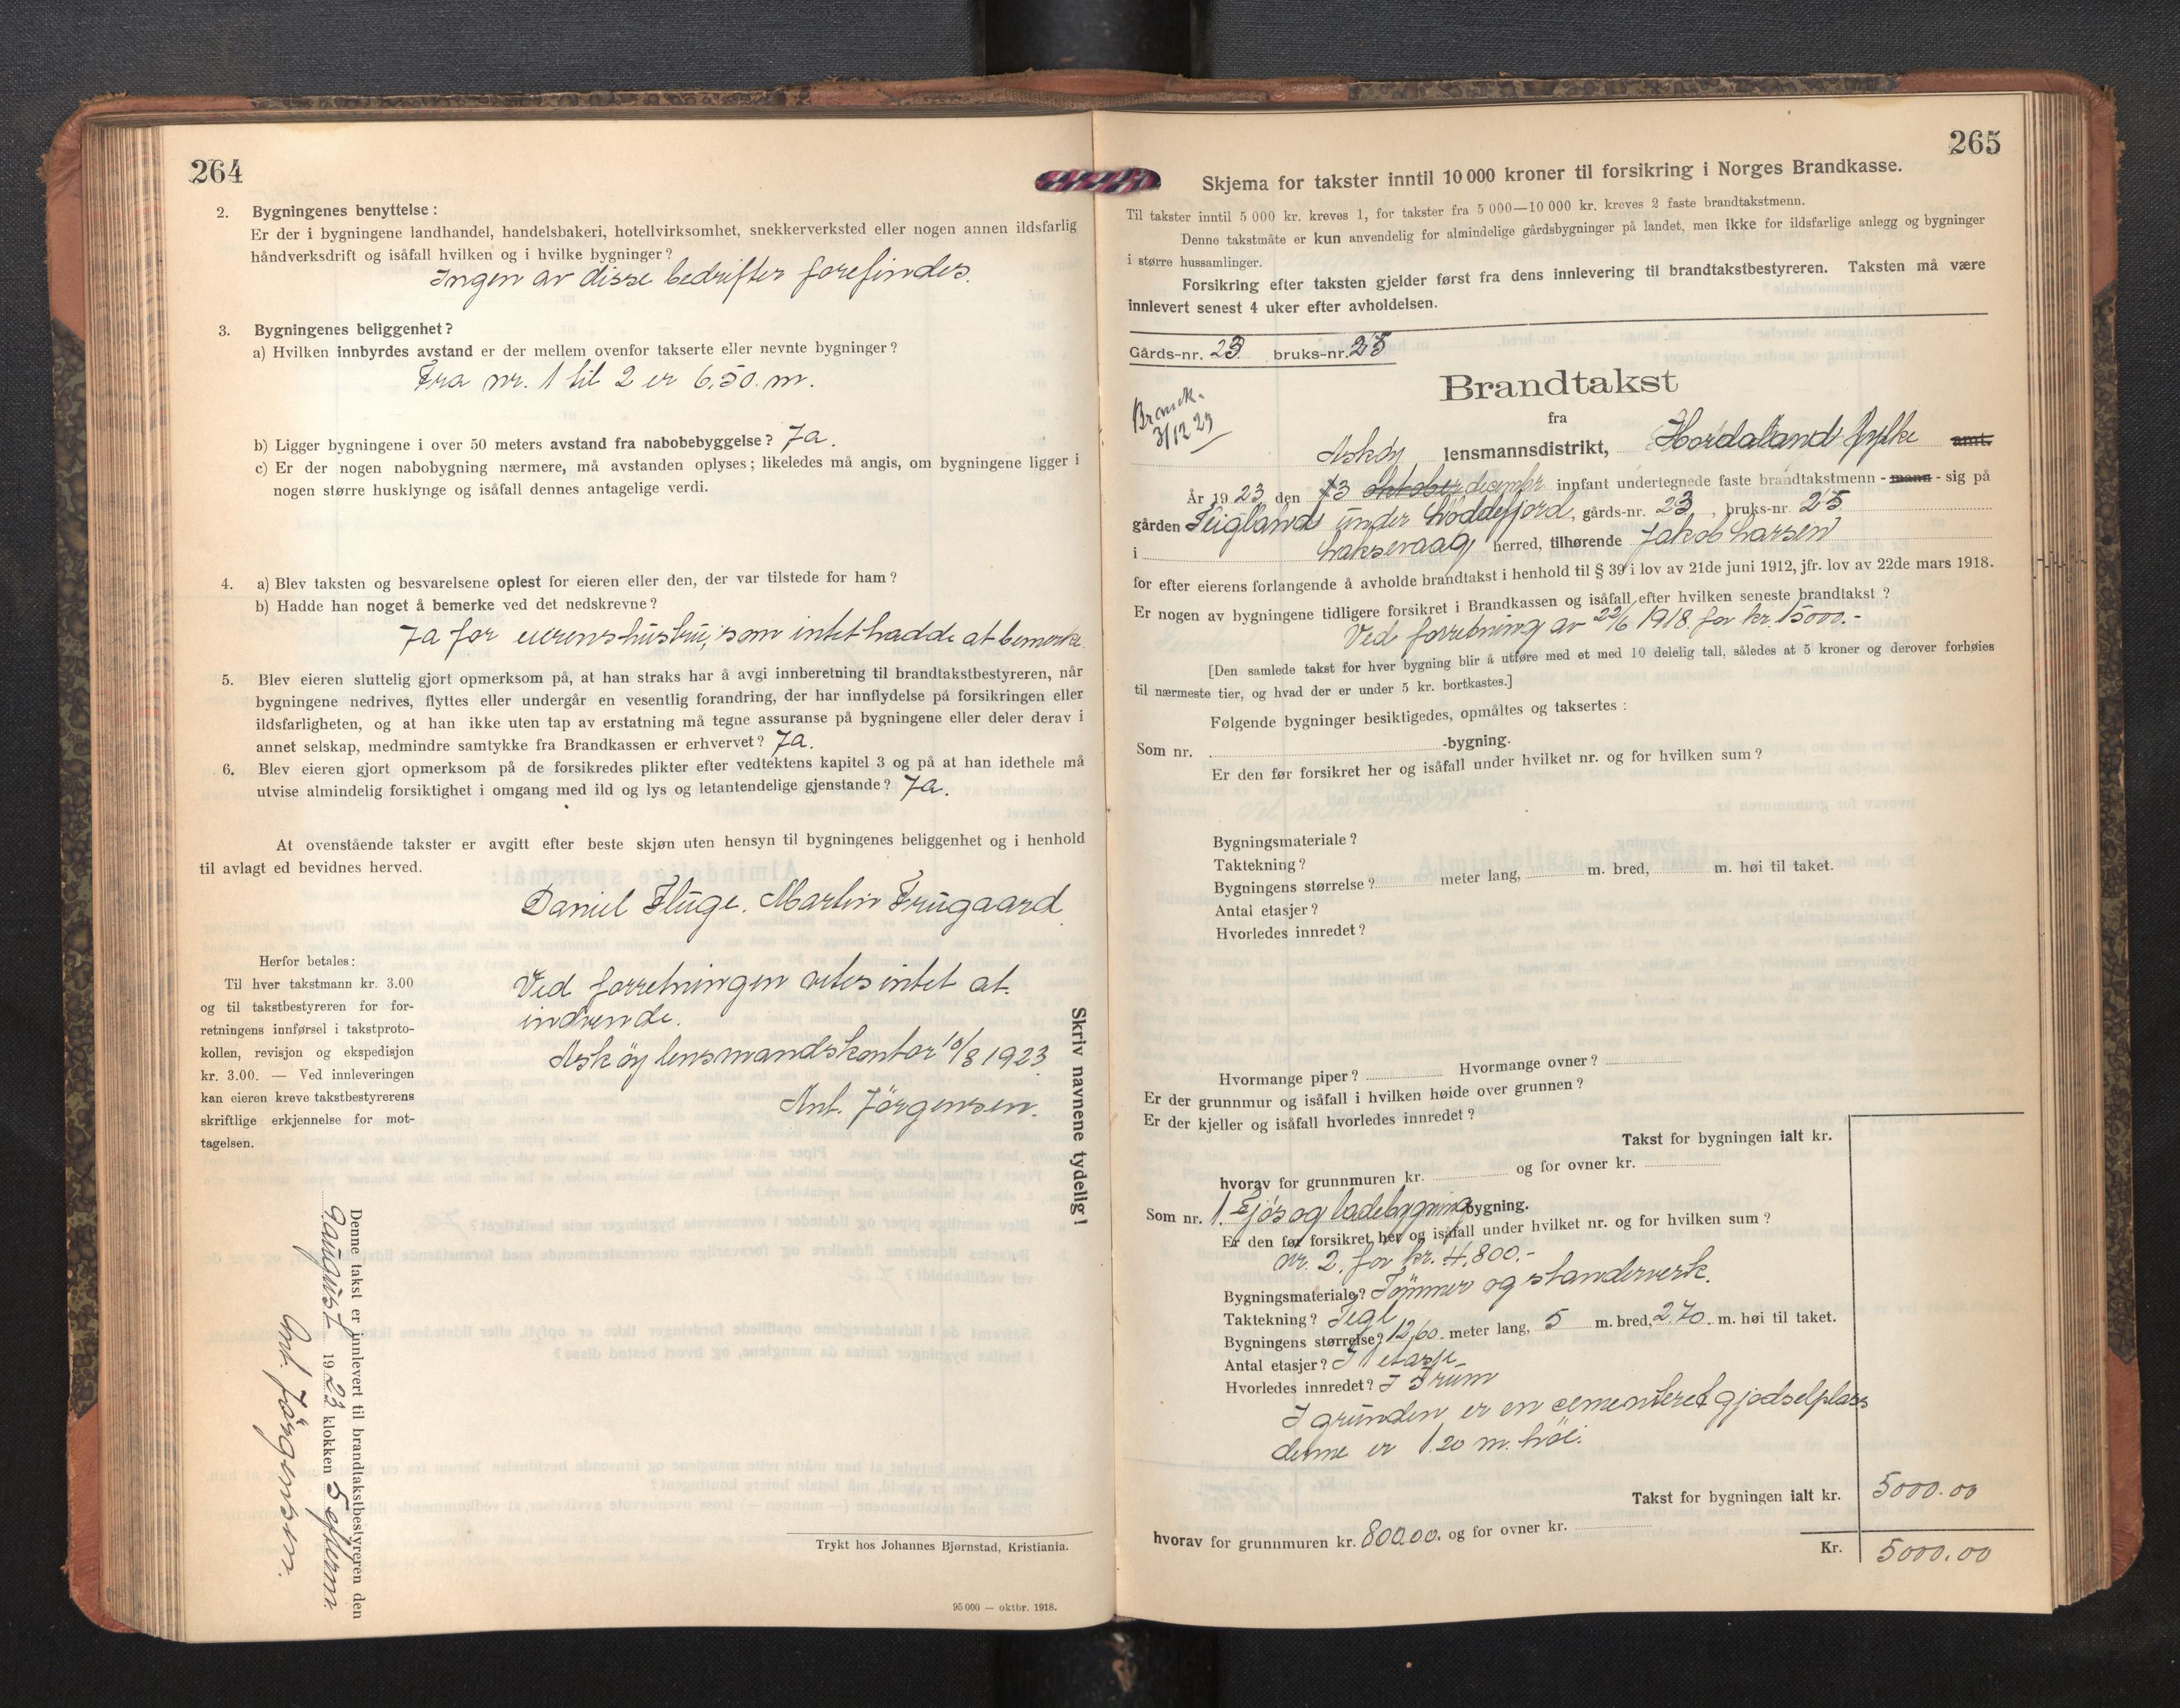 264
2. Bygningenes benyttelse:
Er der i bygningene landhandel, handelsbakeri, hotellvirksomhet, snekkerverksted eller nogen annen ildsfarlig
håndverksdrift og isåfall hvilken og i hvilke bygninger?
Ingen av disse bedrifter forefindes.
3. Bygningenes beliggenhet?
a) Hvilken innbyrdes avstand er der mellem ovenfor takserte eller nevnte bygninger?
Fra nr. 1 til 2 er 6,50. m.
b) Ligger bygningene i over 50 meters avstand fra nabobebyggelse? Ja.
c) Er der nogen nabobygning nærmere, må avstanden oplyses; likeledes må angis, om bygningene ligger i
nogen større husklynge og isåfall dennes antagelige verdi.
4. a) Blev taksten og besvarelsene oplest for eieren eller den, der var tilstede for ham?
b) Hadde han noget å bemerke ved det nedskrevne?
Ja for eierens hustru, som intet hadde at bemerke.
5. Blev eieren sluttelig gjort opmerksom på, at han straks har å avgi innberetning til brandtakstbestyreren, når
bygningene nedrives, flyttes eller undergår en vesentlig forandring, der har innflydelse på forsikringen eller
ildsfarligheten, og at han ikke uten tap av erstatning må tegne assuranse på bygningene eller deler derav i
annet selskap, medmindre samtykke fra Brandkassen er erhvervet? Ja.
6. Blev eieren gjort opmerksom på de forsikredes plikter efter vedtektens kapitel 3 og på at han idethele må
utvise almindelig forsiktighet i omgang med ild og lys og letantendelige gjenstande? Ja.
At ovenstående takster er avgitt efter beste skjøn uten hensyn til bygningenes beliggenhet og i henhold
til avlagt ed bevidnes herved.
Daniel Fluge. Martin Trugaard
Herfor betales:
Til hver takstmann kr. 3.00
og til takstbestyreren for for-
retningens innførsel i takstproto-
kollen, revisjon og ekspedisjon
kr. 3.00. — Ved innleveringen
kan eieren kreve takstbestyrerens
skriftlige erkjennelse for mot-
tagelsen.
Ved forretningen vites intet at
indvende.
Askøy lensmandskontor 10/8 1923
Ant. Jörgensen.
Skriv navnene tydelig!
Denne takst er innlevert til brandtakstbestyreren den
9 august 1923 klokken 5 efterm.
Ant. Jörgensen.
Trykt hos Johannes Bjørnstad, Kristiania.
95 000 — oktbr. 1918.
265
Skjema for takster inntil 10 000 kroner til forsikring i Norges Brandkasse.
Til takster inntil 5 000 kr. kreves 1, for takster fra 5 000—10 000 kr. kreves 2 faste brandtakstmenn.
Denne takstmåte er kun anvendelig for almindelige gårdsbygninger på landet, men ikke for ildsfarlige anlegg og bygninger
i større hussamlinger.
Forsikring efter taksten gjelder først fra dens innlevering til brandtakstbestyreren. Taksten må være
innlevert senest 4 uker efter avholdelsen.
Gårds-nr. 23 bruks-nr. 25
Brandtakst
3/12 23
fra
Askøy lensmannsdistrikt, Hordaland fylke amt.
År 1923 den 13 oktober decembr innfant undertegnede faste brandtakstmenn - mann - sig på
gården Teigland under Loddefjord, gårds-nr. 23, bruks-nr. 25
i Laksevaag herred, tilhørende Jakob Larsen
for efter eierens forlangende å avholde brandtakst i henhold til § 39 i lov av 21de juni 1912, jfr. lov av 22de mars 1918.
Er nogen av bygningene tidligere forsikret i Brandkassen og isåfall efter hvilken seneste brandtakst?
Ved forretning av 22/6 1918. for kr. 15000.-
[Den samlede takst for hver bygning blir å utføre med et med 10 delelig tall, således at 5 kroner og derover forhøies
til nærmeste tier, og hvad der er under 5 kr. bortkastes.]
Følgende bygninger besiktigedes, opmåltes og taksertes:
Som nr. -bygning.
Er den før forsikret her og isåfall under hvilket nr. og for hvilken sum?
Bygningsmateriale?
Taktekning?
Bygningens størrelse? meter lang, m. bred, m. høi til taket.
Antal etasjer?
Hvorledes innredet?
Hvormange piper? Hvormange ovner?
Er der grunnmur og isåfall i hvilken høide over grunnen?
Er der kjeller og isåfall hvorledes innredet?
Takst for bygningen ialt kr.
hvorav for grunnmuren kr. og for ovner kr.
Som nr. 1. Fjös og ladebygning bygning.
Er den før forsikret her og isåfall under hvilket nr. og for hvilken sum?
nr. 2. for kr. 4,800.-
Bygningsmateriale? Tömmer og standerverk.
Taktekning? Tegl
Bygningens størrelse? 12,60 meter lang, 5 m. bred, 2.70 m. høi til taket.
Antal etasjer? I 1 etasje
Hvorledes innredet? I 3 rum
I grunden er en cementeret gjødselplass
denne er 1.20 m. höi.
Takst for bygningen ialt kr. 5000.00
hvorav for grunnmuren kr. 800.00. og for ovner kr.
Kr. 5000.00